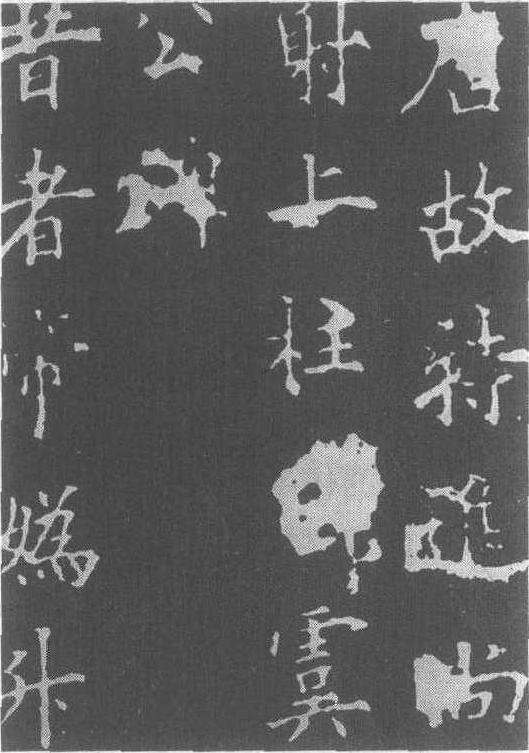 唐故特進尚
射上柱虞
公
昔者帝媯升